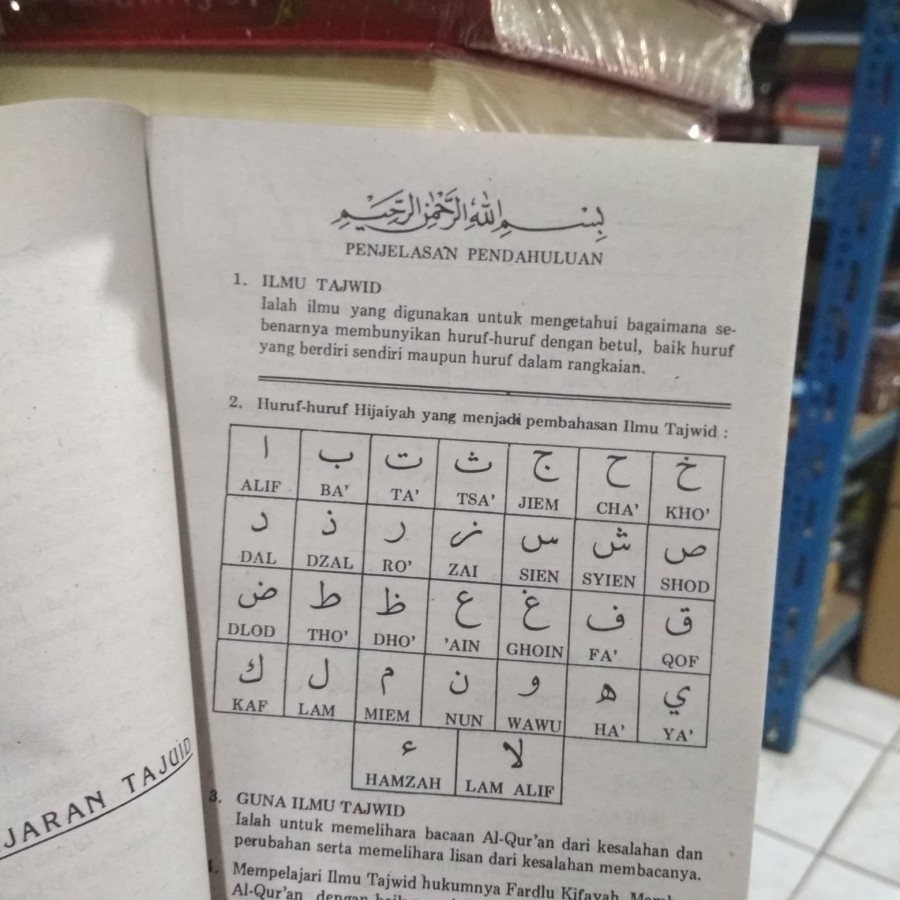 JARAN TAJUID
بِسْمِ اللهِ الرَّحْمٰنِ الرَّحِيْمِ
PENJELASAN PENDAHULUAN
1. ILMU TAJWID
Ialah ilmu yang digunakan untuk mengetahui bagaimana se-
benarnya membunyikan huruf-huruf dengan betul, baik huruf
yang berdiri sendiri maupun huruf dalam rangkaian.
2. Huruf-huruf Hijaiyah yang menjadi pembahasan Ilmu Tajwid :
ا ب ت ث ج ح خ
ALIF BA' TA' TSA' JIEM CHA' KHO'
د ذ ر ز س ش ص
DAL DZAL RO' ZAI SIEN SYIEN SHOD
ض ط ظ ع غ ف ق
DLOD THO' DHO' 'AIN GHOIN FA' QOF
ك ل م ن و ه ي
KAF LAM MIEM NUN WAWU HA' YA'
ء لا
HAMZAH LAM ALIF
3. GUNA ILMU TAJWID
Ialah untuk memelihara bacaan Al-Qur'an dari kesalahan dan
perubahan serta memelihara lisan dari kesalahan membacanya.
4. Mempelajari Ilmu Tajwid hukumnya Fardlu Kifayah
Al-Qur'an dengan